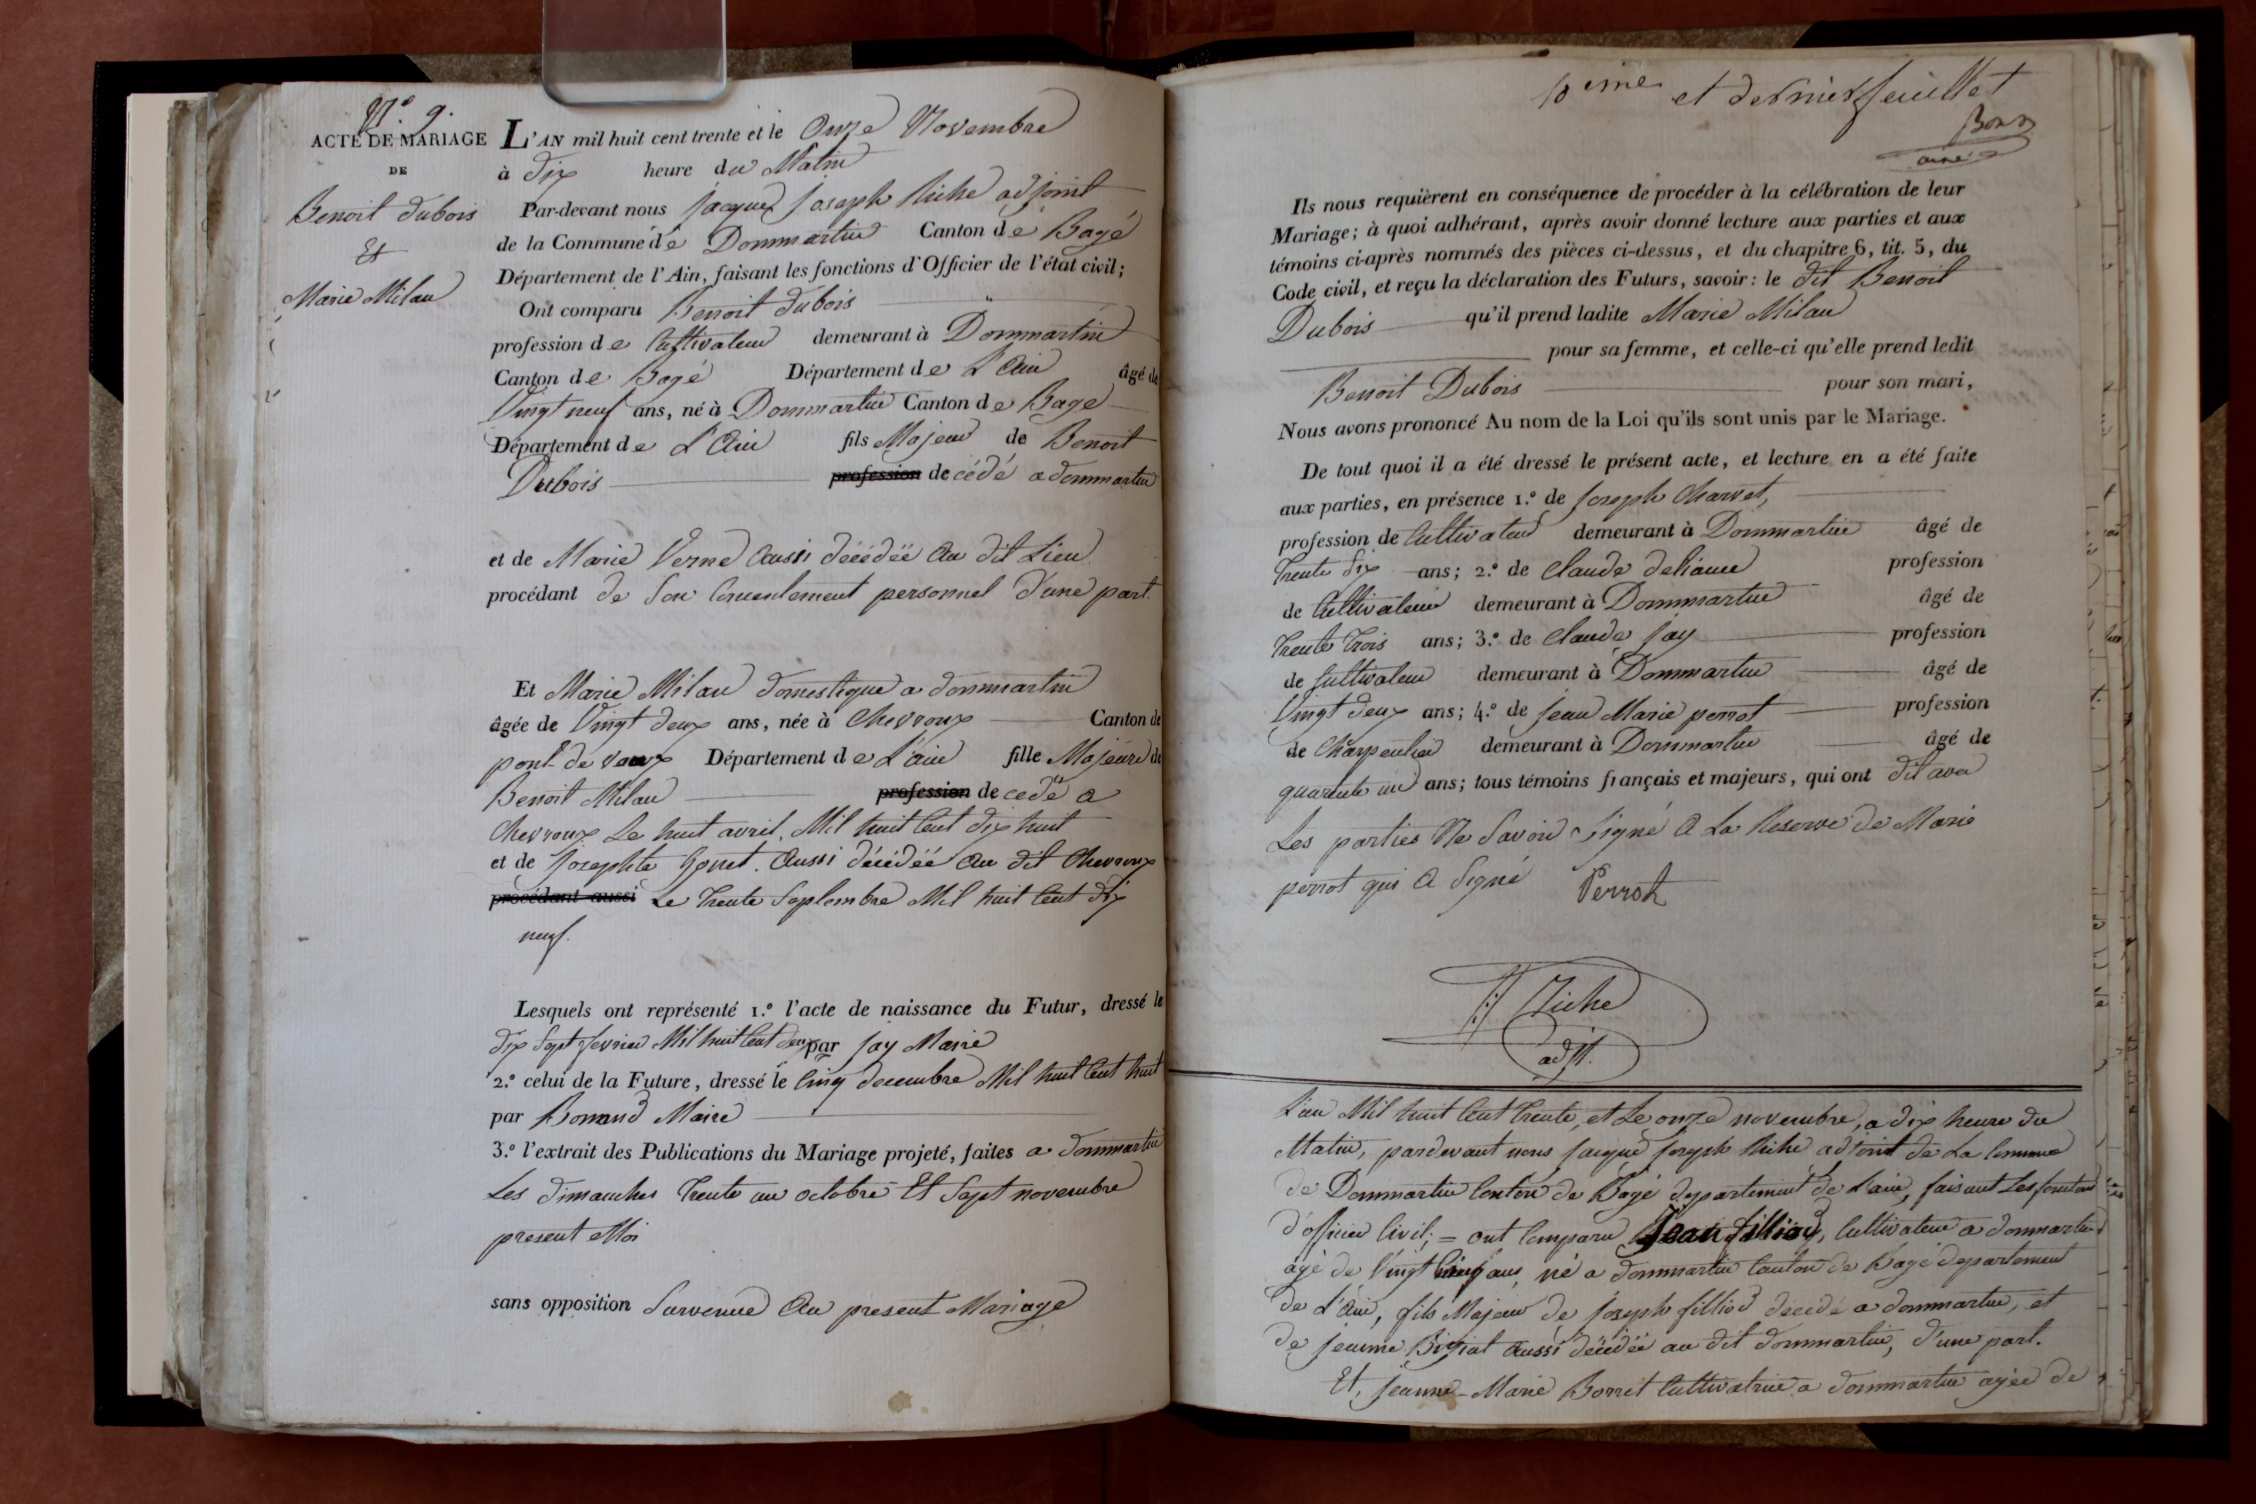 N.º 9.
ACTE DE MARIAGE
DE
Benoit dubois
Et
Marie Milan
L'AN mil huit cent trente et le Onze Novembre
à dix heure du Matin
Par-devant nous jacque joseph Riche adjoint
de la Commune de Dommartin Canton de Bagé
Département de l'Ain, faisant les fonctions d'Officier de l'état civil;
Ont comparu Benoit dubois
profession de Cultivateur demeurant à Dommartin
Canton de Bagé Département de L'Ain âgé de
Vingt neuf ans, né à Dommartin Canton de Bagé
Département de L'Ain fils Majeur de Benoit
Dubois profession decédé a dommartin
et de Marie Verne aussi décédée au dit Lieu
procédant de Son Consentement personnel d'une part.
Et Marie Milan domestique a dommartin
âgée de Vingt deux ans, née à Chevroux Canton de
pont de vaux Département de L'ain fille Majeure de
Benoit Milan profession decedé a
Chevroux Le huit avril Mil huit Cent dix huit
et de josephte gonet. Aussi décédée au dit Chevroux
procédant aussi Le trente Septembre Mil huit Cent dix
neuf.
Lesquels ont représenté 1.º l'acte de naissance du Futur, dressé le
dix Sept fevrier Mil huit Cent deux par jay Maire
2.º celui de la Future, dressé le Cinq decembre Mil huit Cent huit
par Bonand Maire
3.º l'extrait des Publications du Mariage projeté, faites a dommartin
Les dimanches trente un octobre Et Sept novembre
present Moi
sans opposition Survenue Au present Mariage
10 eime et dernier feuillet
Ils nous requièrent en conséquence de procéder à la célébration de leur
Mariage; à quoi adhérant, après avoir donné lecture aux parties et aux
témoins ci-après nommés des pièces ci-dessus, et du chapitre 6, tit. 5, du
Code civil, et reçu la déclaration des Futurs, savoir: le dit Benoit
Dubois qu'il prend ladite Marie Milan
pour sa femme, et celle-ci qu'elle prend ledit
Benoit Dubois pour son mari,
Nous avons prononcé Au nom de la Loi qu'ils sont unis par le Mariage.
De tout quoi il a été dressé le présent acte, et lecture en a été faite
aux parties, en présence 1.º de joseph Charvet,
profession de Cultivateur demeurant à Dommartin âgé de
trente dix ans; 2.º de Claude deliance profession
de Cultivateur demeurant à Dommartin âgé de
trente trois ans; 3.º de Claude jay profession
de Cultivateur demeurant à Dommartin âgé de
Vingt deux ans; 4.º de jean Marie perrot profession
de Charpentier demeurant à Dommartin âgé de
quarante un ans; tous témoins français et majeurs, qui ont dit avec
Les parties Ne Savoir Signé A La Reserve de Marie
perrot qui A Signé Perrot
Riche
adjt.
L'an Mil huit Cent trente, et Le onze novembre, a dix heure du
Matin, pardevant nous jacque joseph Riche adjoint de La Commune
de Dommartin Canton de Bagé departement de L'ain, faisant Les fonctions
d'officier Civil; = ont Comparu Jean filliod, Cultivateur a dommartin
agé de Vingt ans, né a dommartin Canton de Bagé departement
de L'Ain, fils Majeur de joseph filliod décédé a dommartin, et
de jeanne aussi décédée au dit dommartin, d'une part.
Et, jeanne-Marie Borret Cultivatrice a dommartin agée de